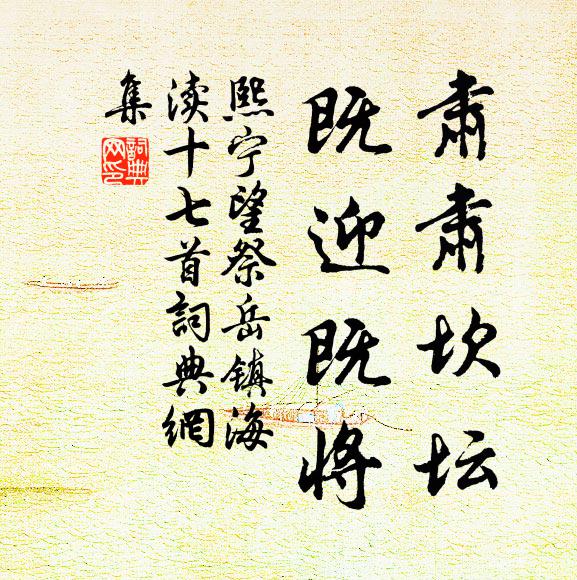 肃肃坎坛
既迎既将
熙宁望祭岳镇海
渎十七首詞典網
集
詞典网印